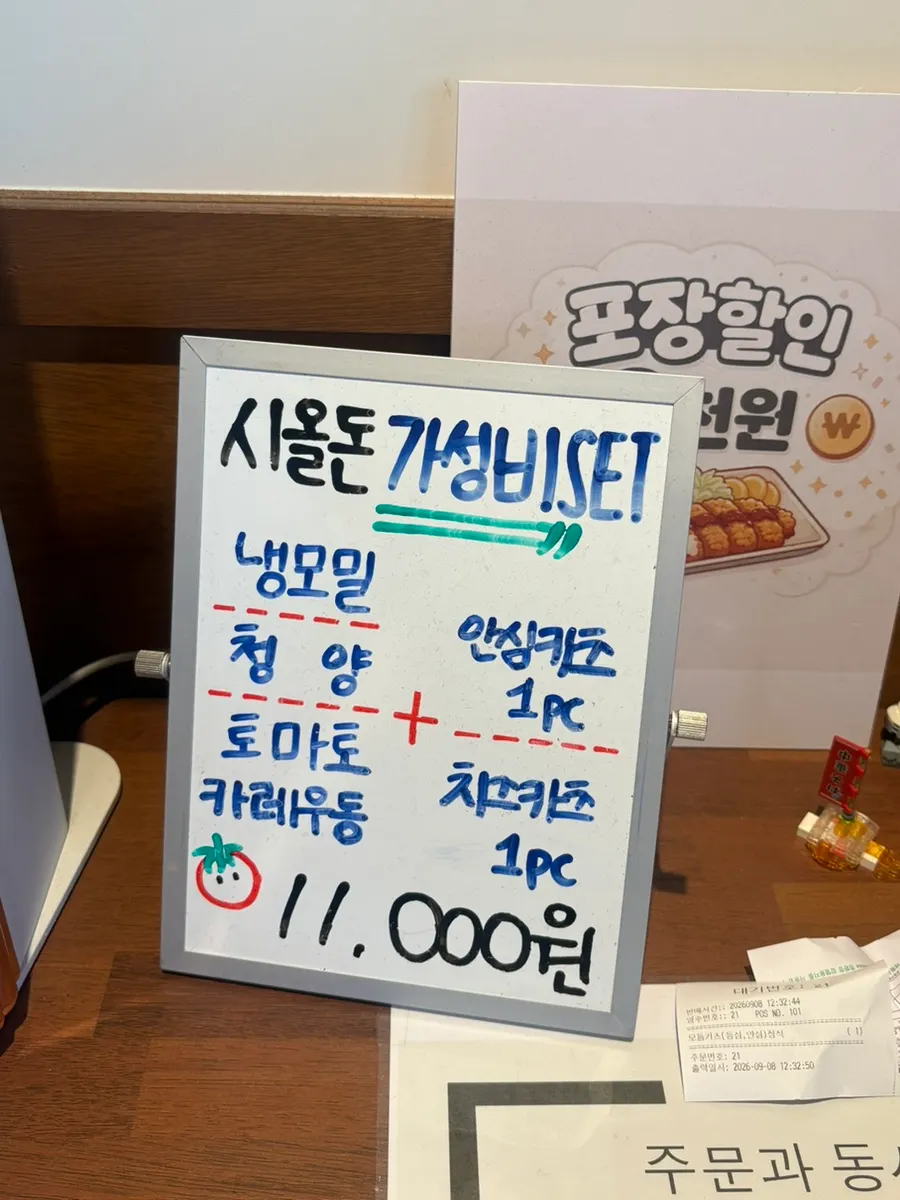 포장할인
천원
₩
시올돈 가성비!SET
냉모밀
청 양
토마토
카레우동
+
안심카츠
1pc
치즈카츠
1pc
11.000원
대기번호: 21
판매시간: 20260908 12:32:44
영수번호: 21 POS NO. 101
모듬카츠(등심,안심)정식 (1)
주문번호: 21
출력일시: 2026-09-08 12:32:50
주문과 동